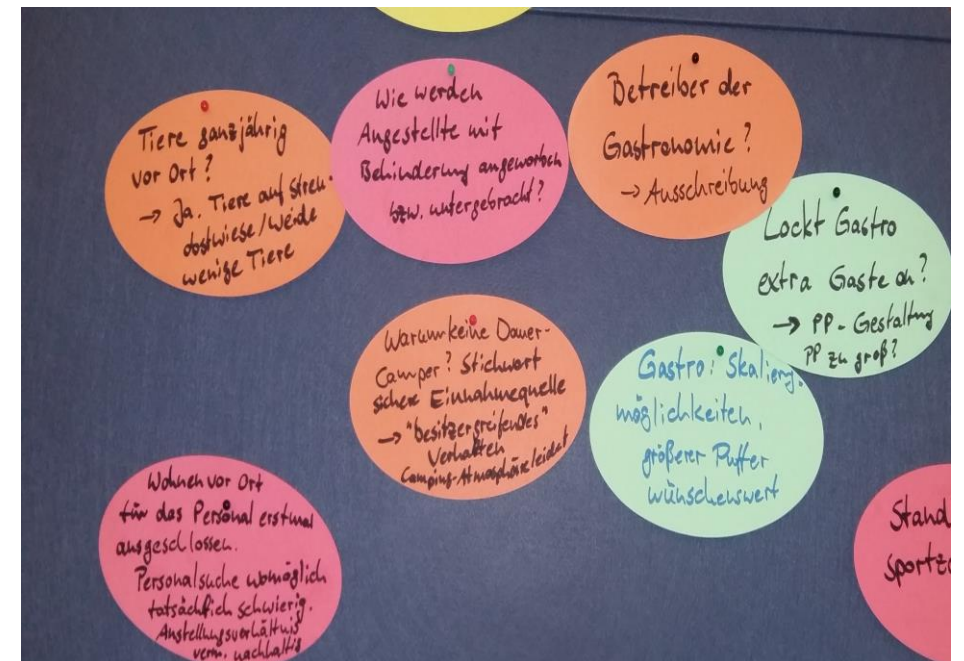 Tiere ganzjährig
vor Ort?
→ Ja. Tiere auf Streu-
obstwiese/Weide
wenige Tiere
Wie werden
Angestellte mit
Behinderung angeworben
bzw. untergebracht?
Betreiber der
Gastronomie?
→ Ausschreibung
Lockt Gastro
extra Gäste an?
→ PP-Gestaltung
PP zu groß?
Warum keine Dauer-
Camper? Stichwort
sichere Einnahmequelle
→ "besitzergreifendes"
Verhalten
Camping-Atmosphäre leidet
Gastro: Skalierg.
möglichkeiten,
größerer Puffer
wünschenswert
Wohnen vor Ort
für das Personal erstmal
ausgeschlossen.
Personalsuche womöglich
tatsächlich schwierig.
Anstellungsverhältnis
verm. nachhaltig
Stand
Sportz